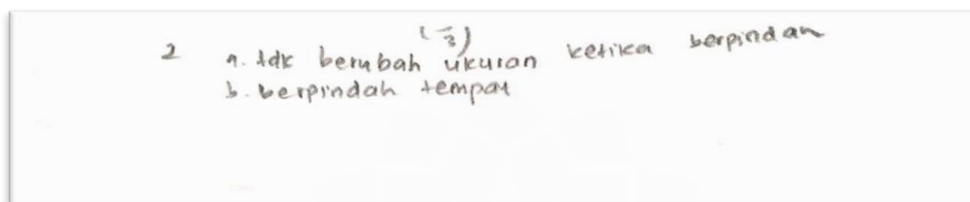 2 a. tdk berubah ukuran ketika berpindah
b. berpindah tempat